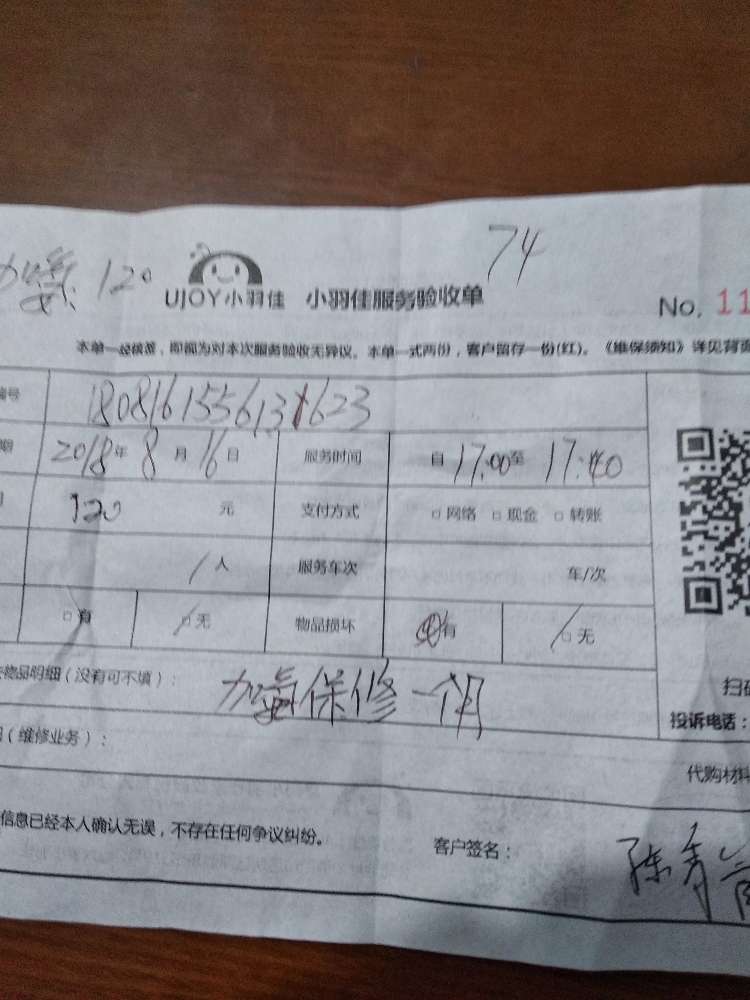 74
加氟 120
UJOY小羽佳 小羽佳服务验收单
No. 11
本单一经核签，即视为对本次服务验收无异议。本单一式两份，客户留存一份(红)。《维保须知》详见背面
编号 180816155613 1623
期 2018年 8月 16日 服务时间 自 17:00至 17:40
120 元 支付方式 □ 网络 □ 现金 □ 转账
1 人 服务车次 车/次
□ 有 □ 无 物品损坏 有 □ 无
物品明细（没有可不填）： 加氟保修一个月
扫
投诉电话：
（维修业务）：
代购材料
信息已经本人确认无误，不存在任何争议纠纷。 客户签名：